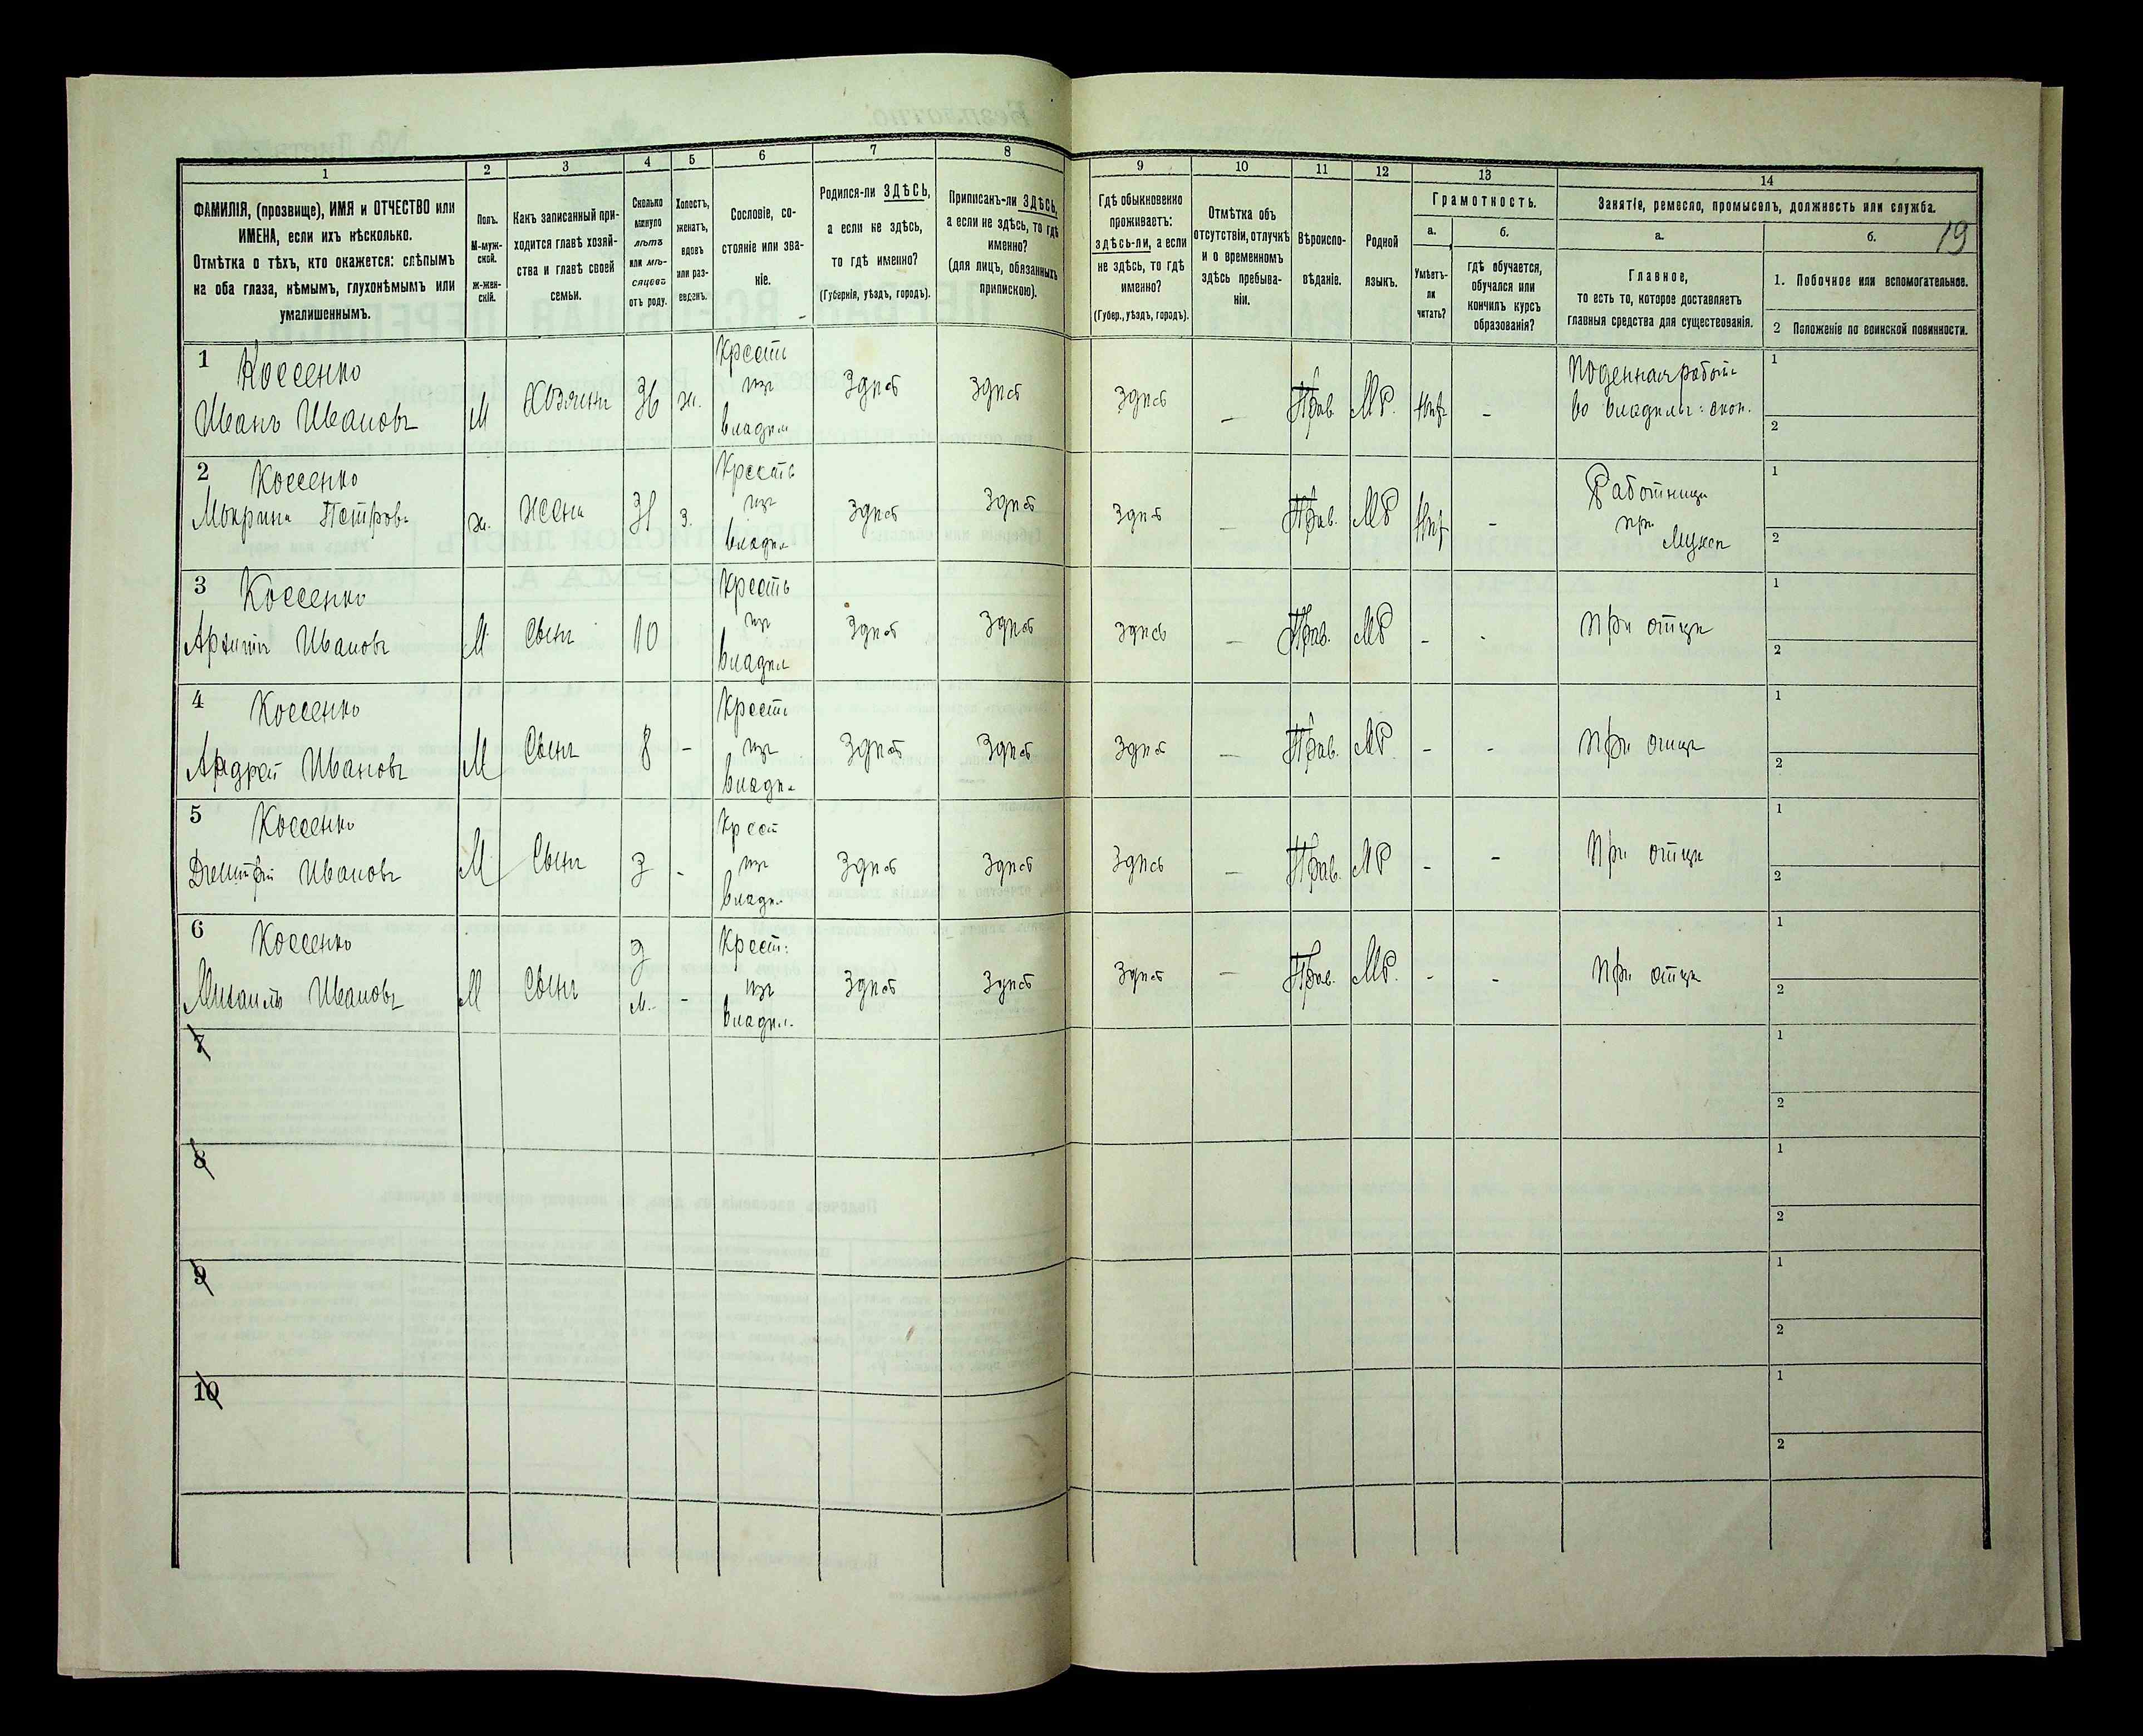 1
2
3
4
5
6
7
8
9
10
11
12
13
14
ФАМИЛІЯ, (прозвище), ИМЯ и ОТЧЕСТВО или
ИМЕНА, если ихъ нѣсколько.
Отмѣтка о тѣхъ, кто окажется: слѣпымъ
на оба глаза, нѣмымъ, глухонѣмымъ или
умалишеннымъ.
Полъ.
М-муж-
ской.
ж-жен-
скій.
Какъ записанный при-
ходится главѣ хозяй-
ства и главѣ своей
семьи.
Сколько
минуло
лѣтъ
или мѣ-
сяцевъ
отъ роду.
Холостъ,
женатъ,
вдовъ
или раз-
веденъ.
Сословіе, со-
стояніе или зва-
ніе.
Родился-ли ЗДѢСЬ,
а если не здѣсь,
то гдѣ именно?
(Губернія, уѣздъ, городъ).
Приписанъ-ли ЗДѢСЬ,
а если не здѣсь, то гдѣ
именно?
(для лицъ, обязанныхъ
припискою).
Гдѣ обыкновенно
проживаетъ:
здѣсь-ли, а если
не здѣсь, то гдѣ
именно?
(Губер., уѣздъ, городъ).
Отмѣтка объ
отсутствіи, отлучкѣ
и о временномъ
здѣсь пребыва-
ніи.
Вѣроиспо-
вѣданіе.
Родной
языкъ.
Грамотность.
а.
Умѣетъ-
ли
читать?
б.
гдѣ обучается,
обучался или
кончилъ курсъ
образованія?
Занятіе, ремесло, промыселъ, должность или служба.
19
а.
Главное,
то есть то, которое доставляетъ
главныя средства для существованія.
б.
1. Побочное или вспомогательное.
2 Положеніе по воинской повинности.
1 Косенко
Иванъ Ивановъ
М
Хозяинъ
36
ж.
Крестъ
изъ
владѣл
Здѣсь
Здѣсь
Здѣсь
—
Прав
МР.
Нѣтъ
-
Поденная работа
во владѣль: экон.
1
2
2 Косенко
Мокрина Петрова
ж.
Жена
31
з.
Крестъ
изъ
владѣл
Здѣсь
Здѣсь
Здѣсь
—
Прав.
МР
Нѣт
-
Работница
при
Мужѣ
1
2
3 Косенко
Архипъ Ивановъ
М
Сынъ
10
Крестъ
изъ
владѣл
Здѣсь
Здѣсь
Здѣсь
—
Прав.
МР
-
-
При отцѣ
1
2
4 Косенко
Андрей Ивановъ
М
Сынъ
8
-
Крестъ
изъ
владѣл
Здѣсь
Здѣсь
Здѣсь
—
Прав.
МР
-
-
При отцѣ
1
2
5 Косенко
Дмитрій Ивановъ
М
Сынъ
3
-
Крест
изъ
владѣл
Здѣсь
Здѣсь
Здѣсь
—
Прав.
МР
-
-
При отцѣ
1
2
6 Косенко
Михаилъ Ивановъ
М
Сынъ
9
м.
-
Крест:
изъ
владѣл.
Здѣсь
Здѣсь
Здѣсь
—
Прав.
МР.
-
-
При отцѣ
1
2
7
1
2
8
1
2
9
1
2
10
1
2